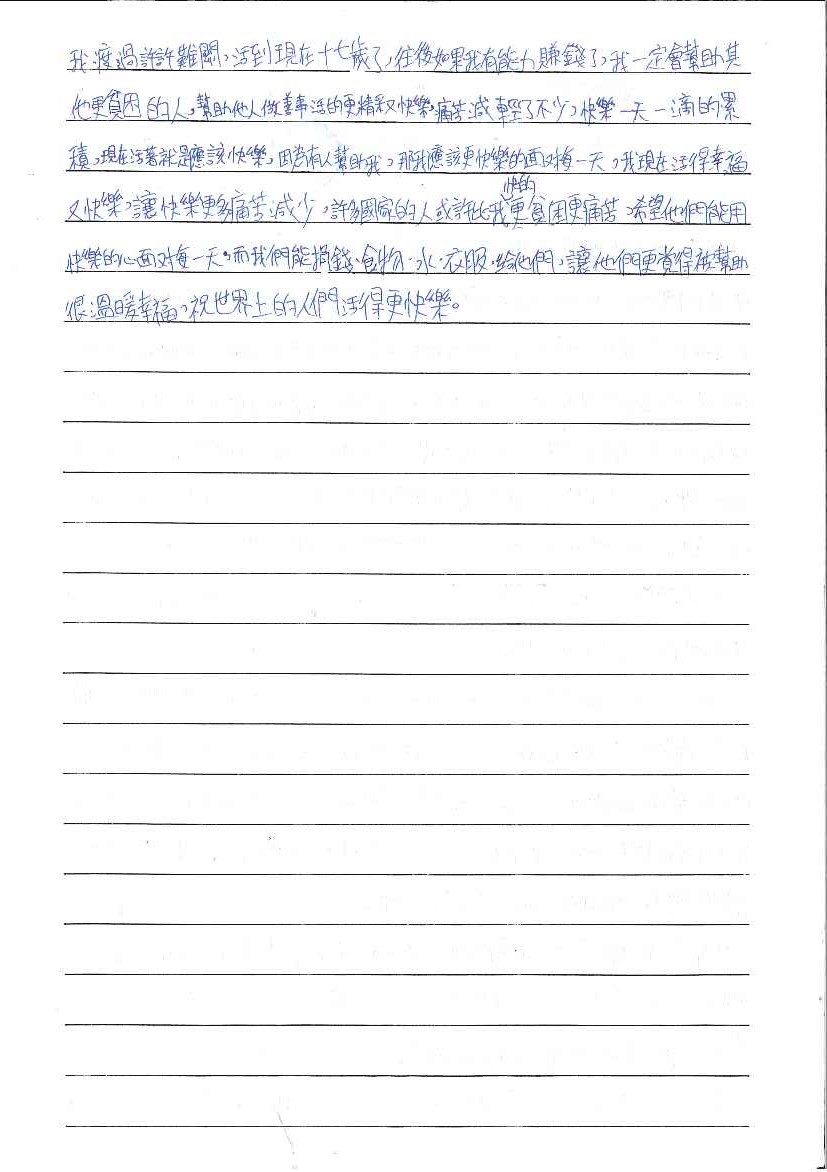 我渡過許許難關，活到現在十七歲了，往後如果我有能力賺錢了，我一定會幫助其
他更貧困的人，幫助他人做善事活的更精采又快樂，痛苦減輕了不少，快樂一天一滴的累
積，現在活著就是應該快樂，因為有人幫助我，那我應該更快樂的面對每一天，我現在活得幸福
又快樂，讓快樂更多痛苦減少，許多國家的人或許比我更貧困更痛苦，希望他們能用
快樂的心面對每一天，而我們能捐錢、食物、水、衣服，給他們，讓他們更覺得被幫助
很溫暖幸福，祝世界上的人們活得更快樂。